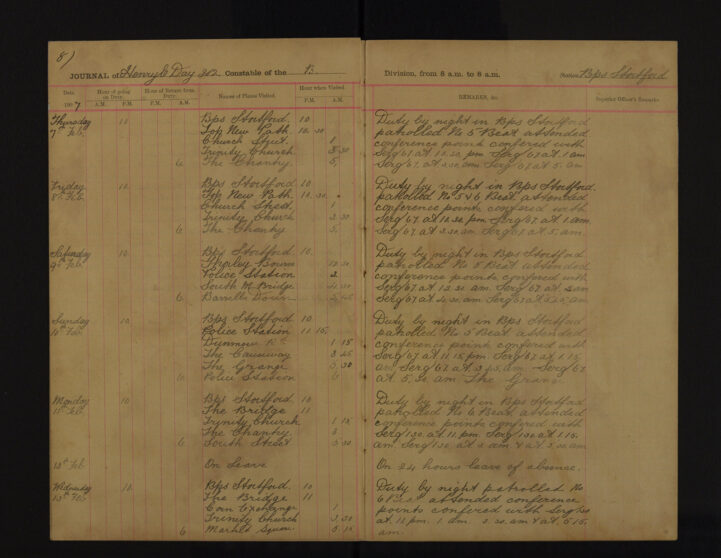 8)
JOURNAL of Henry C Day 302. Constable of the B Division, from 8 a.m. to 8 a.m. Station Bps Stortford
Date. Hour of going on Duty. Hour of Return from Duty. Names of Places Visited. Hour when Visited. REMARKS, &c. Superior Officer's Remarks
1907 A.M. P.M. P.M. A.M. P.M. A.M.
Thursday 10 Bps Stortford 10 Duty by night in Bps Stortford
7th Feb. Top New Path 10.30 patrolled No 5 Beat attended
Church Street 1 conference point confered with
Trinity Church Serg 67 at 10.30 pm Serg 67 at 1 am
6 The Chantry 5 Serg 67 at 3.30 am Serg 67 at 5 am
Friday 10 Bps Stortford 10 Duty by night in Bps Stortford.
8th Feb. Top New Path 10.30 patrolled No 5 & 6 Beat attended
Church Street 1 conference points confered with
Trinity Church 3.30 Serg 67 at 10.30 pm Serg 67 at 1 am.
6 The Chantry 5 Serg 67 at 3.30 am Serg 67 at 5 am.
Saturday 10 Bps Stortford 10 Duty by night in Bps Stortford
9th Feb. Thorley Bourn 12.30 patrolled No 5 Beat attended
Police Station 2 conference points confered with
South St Bridge 4.30 Serg 67 at 12.30 am Serg 67 at 2 am
6 Barrells Down Serg 67 at 4.30 am Serg 67 at
Sunday 10 Bps Stortford 10 Duty by night in Bps Stortford
10th Feb Police Station 11.15 patrolled No 5 Beat attended
Dunmow Rd 1.15 conference point confered with
The Causeway 3.45 Serg 67 at 11.15 pm Serg 67 at 1.15
The Grange 5.30 am Serg 67 at 3.45 am Serg 67
6 Police Station 6 at 5.30 am The Grange
Monday 10 Bps Stortford 10 Duty by night in Bps Stortford
11th Feb The Bridge 11 patrolled No 6 Beat attended
Trinity Church 1.15 conference points confered with
The Chantry 3 Serg 130 at 11 pm Serg 130 at 1.15
6 South Street 5.30 am Serg 130 at 3 am & at 5.30 am
12th Feb On Leave On 24 hours leave of absence.
Wednesday 10 Bps Stortford. 10 Duty by night patrolled No
13th Feb The Bridge 11 6 Beat attended conference
Corn Exchange 1 points confered with Serg
Trinity Church 3.30 at 11 pm. 1 am. 3.30 am & at 5.15
6 Market Square 5.15 am.